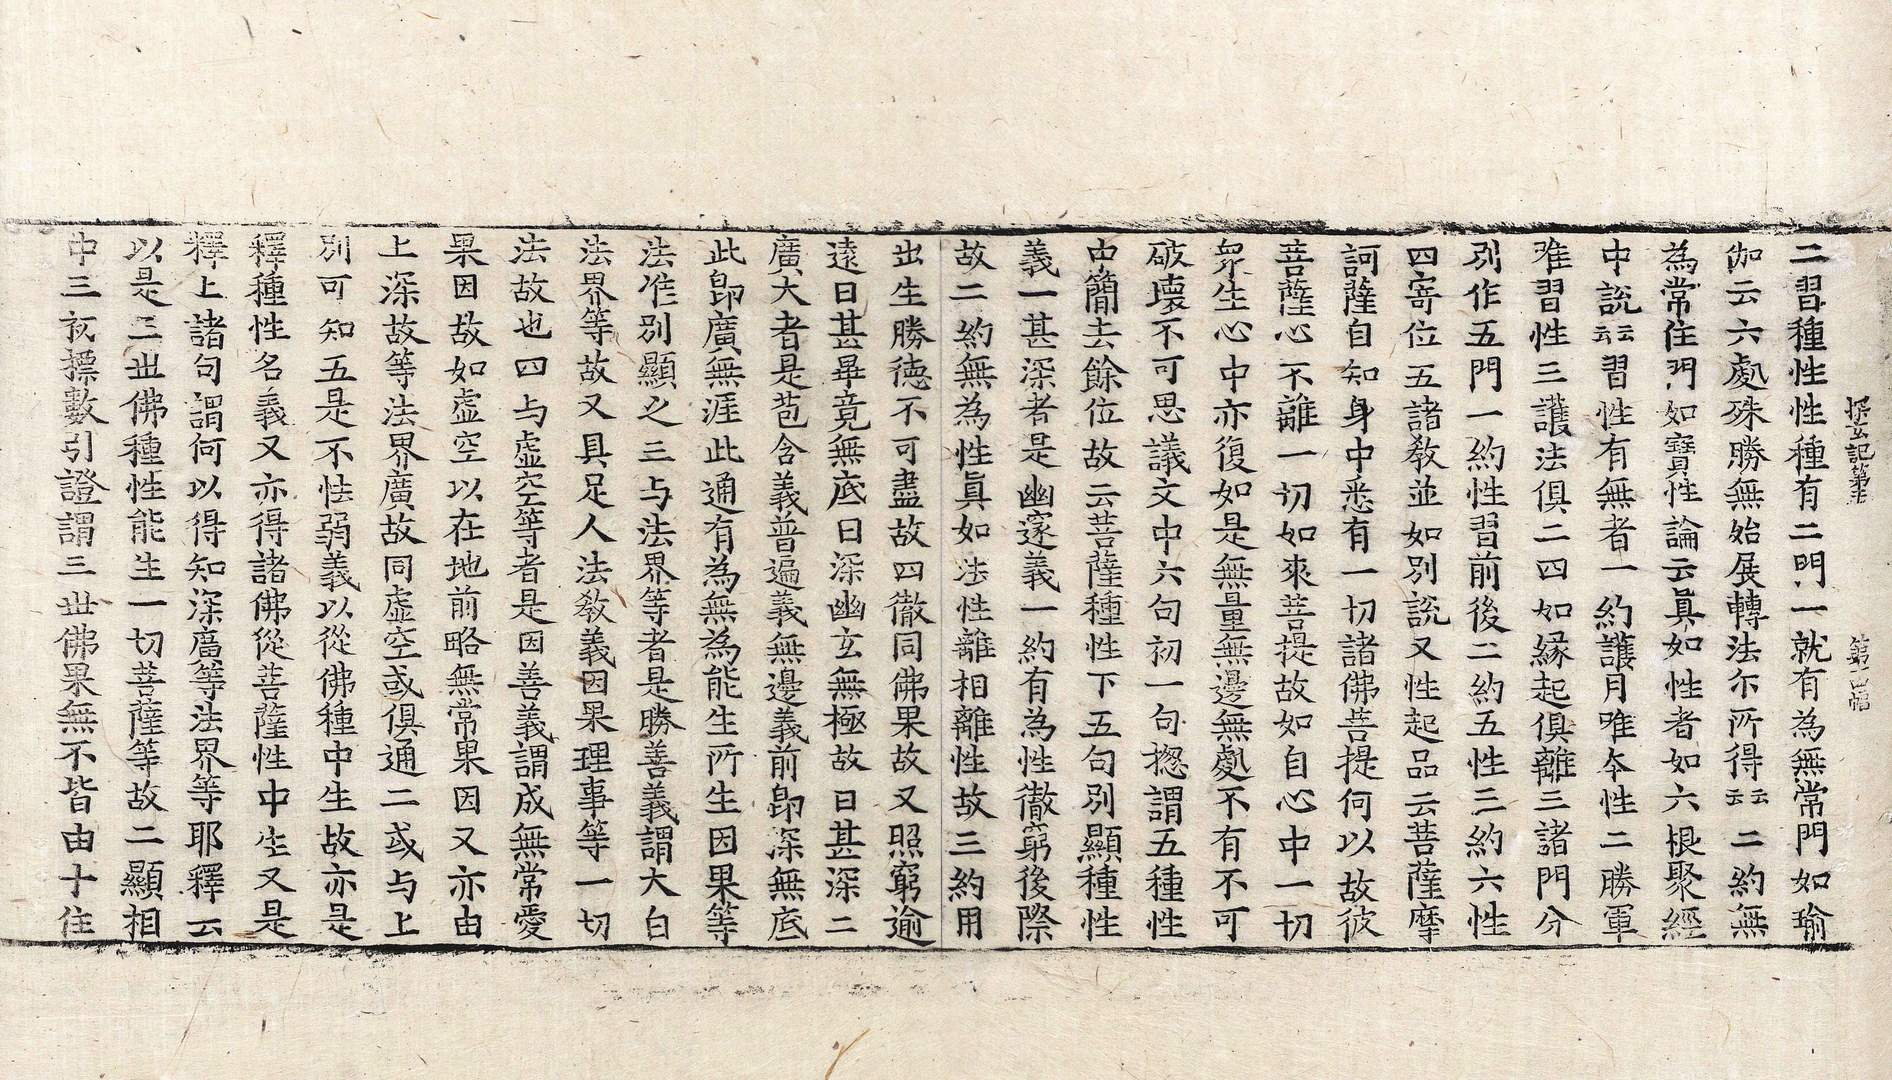 探玄記第五　第十四幅
二習種性性種有二門一就有為無常門如瑜
伽云六處殊勝無始展轉法尒所得云云二約無
為常住門如寶性論云真如性者如六根聚經
中說云云習性有無者一約護月唯本性二勝軍
唯習性三護法俱二四如緣起俱離三諸門分
別作五門一約性習前後二約五性三約六性
四寄位五諸教並如別說又性起品云菩薩摩
訶薩自知身中悉有一切諸佛菩提何以故彼
菩薩心不離一切如來菩提故如自心中一切
眾生心中亦復如是無量無邊無處不有不可
破壞不可思議文中六句初一句揔謂五種性
中簡去餘位故云菩薩種性下五句別顯種性
義一甚深者是幽邃義一約有為性徹窮後際
故二約無為性真如法性離相離性故三約用
出生勝德不可盡故四徹同佛果故又照窮逾
遠曰甚畢竟無底曰深幽玄無極故曰甚深二
廣大者是苞含義普遍義無邊義前即深無底
此即廣無涯此通有為無為能生所生因果等
法准別顯之三与法界等者是勝善義謂大白
法界等故又具足人法教義因果理事等一切
法故也四与虛空等者是因善義謂成無常愛
果因故如虛空以在地前略無常果因又亦由
上深故等法界廣故同虛空或俱通二或与上
別可知五是不性弱義以從佛種中生故亦是
釋種性名義又亦得諸佛從菩薩性中生又是
釋上諸句謂何以得知深廣等法界等耶釋云
以是三世佛種性能生一切菩薩等故二顯相
中三初摽數引證謂三世佛果無不皆由十住